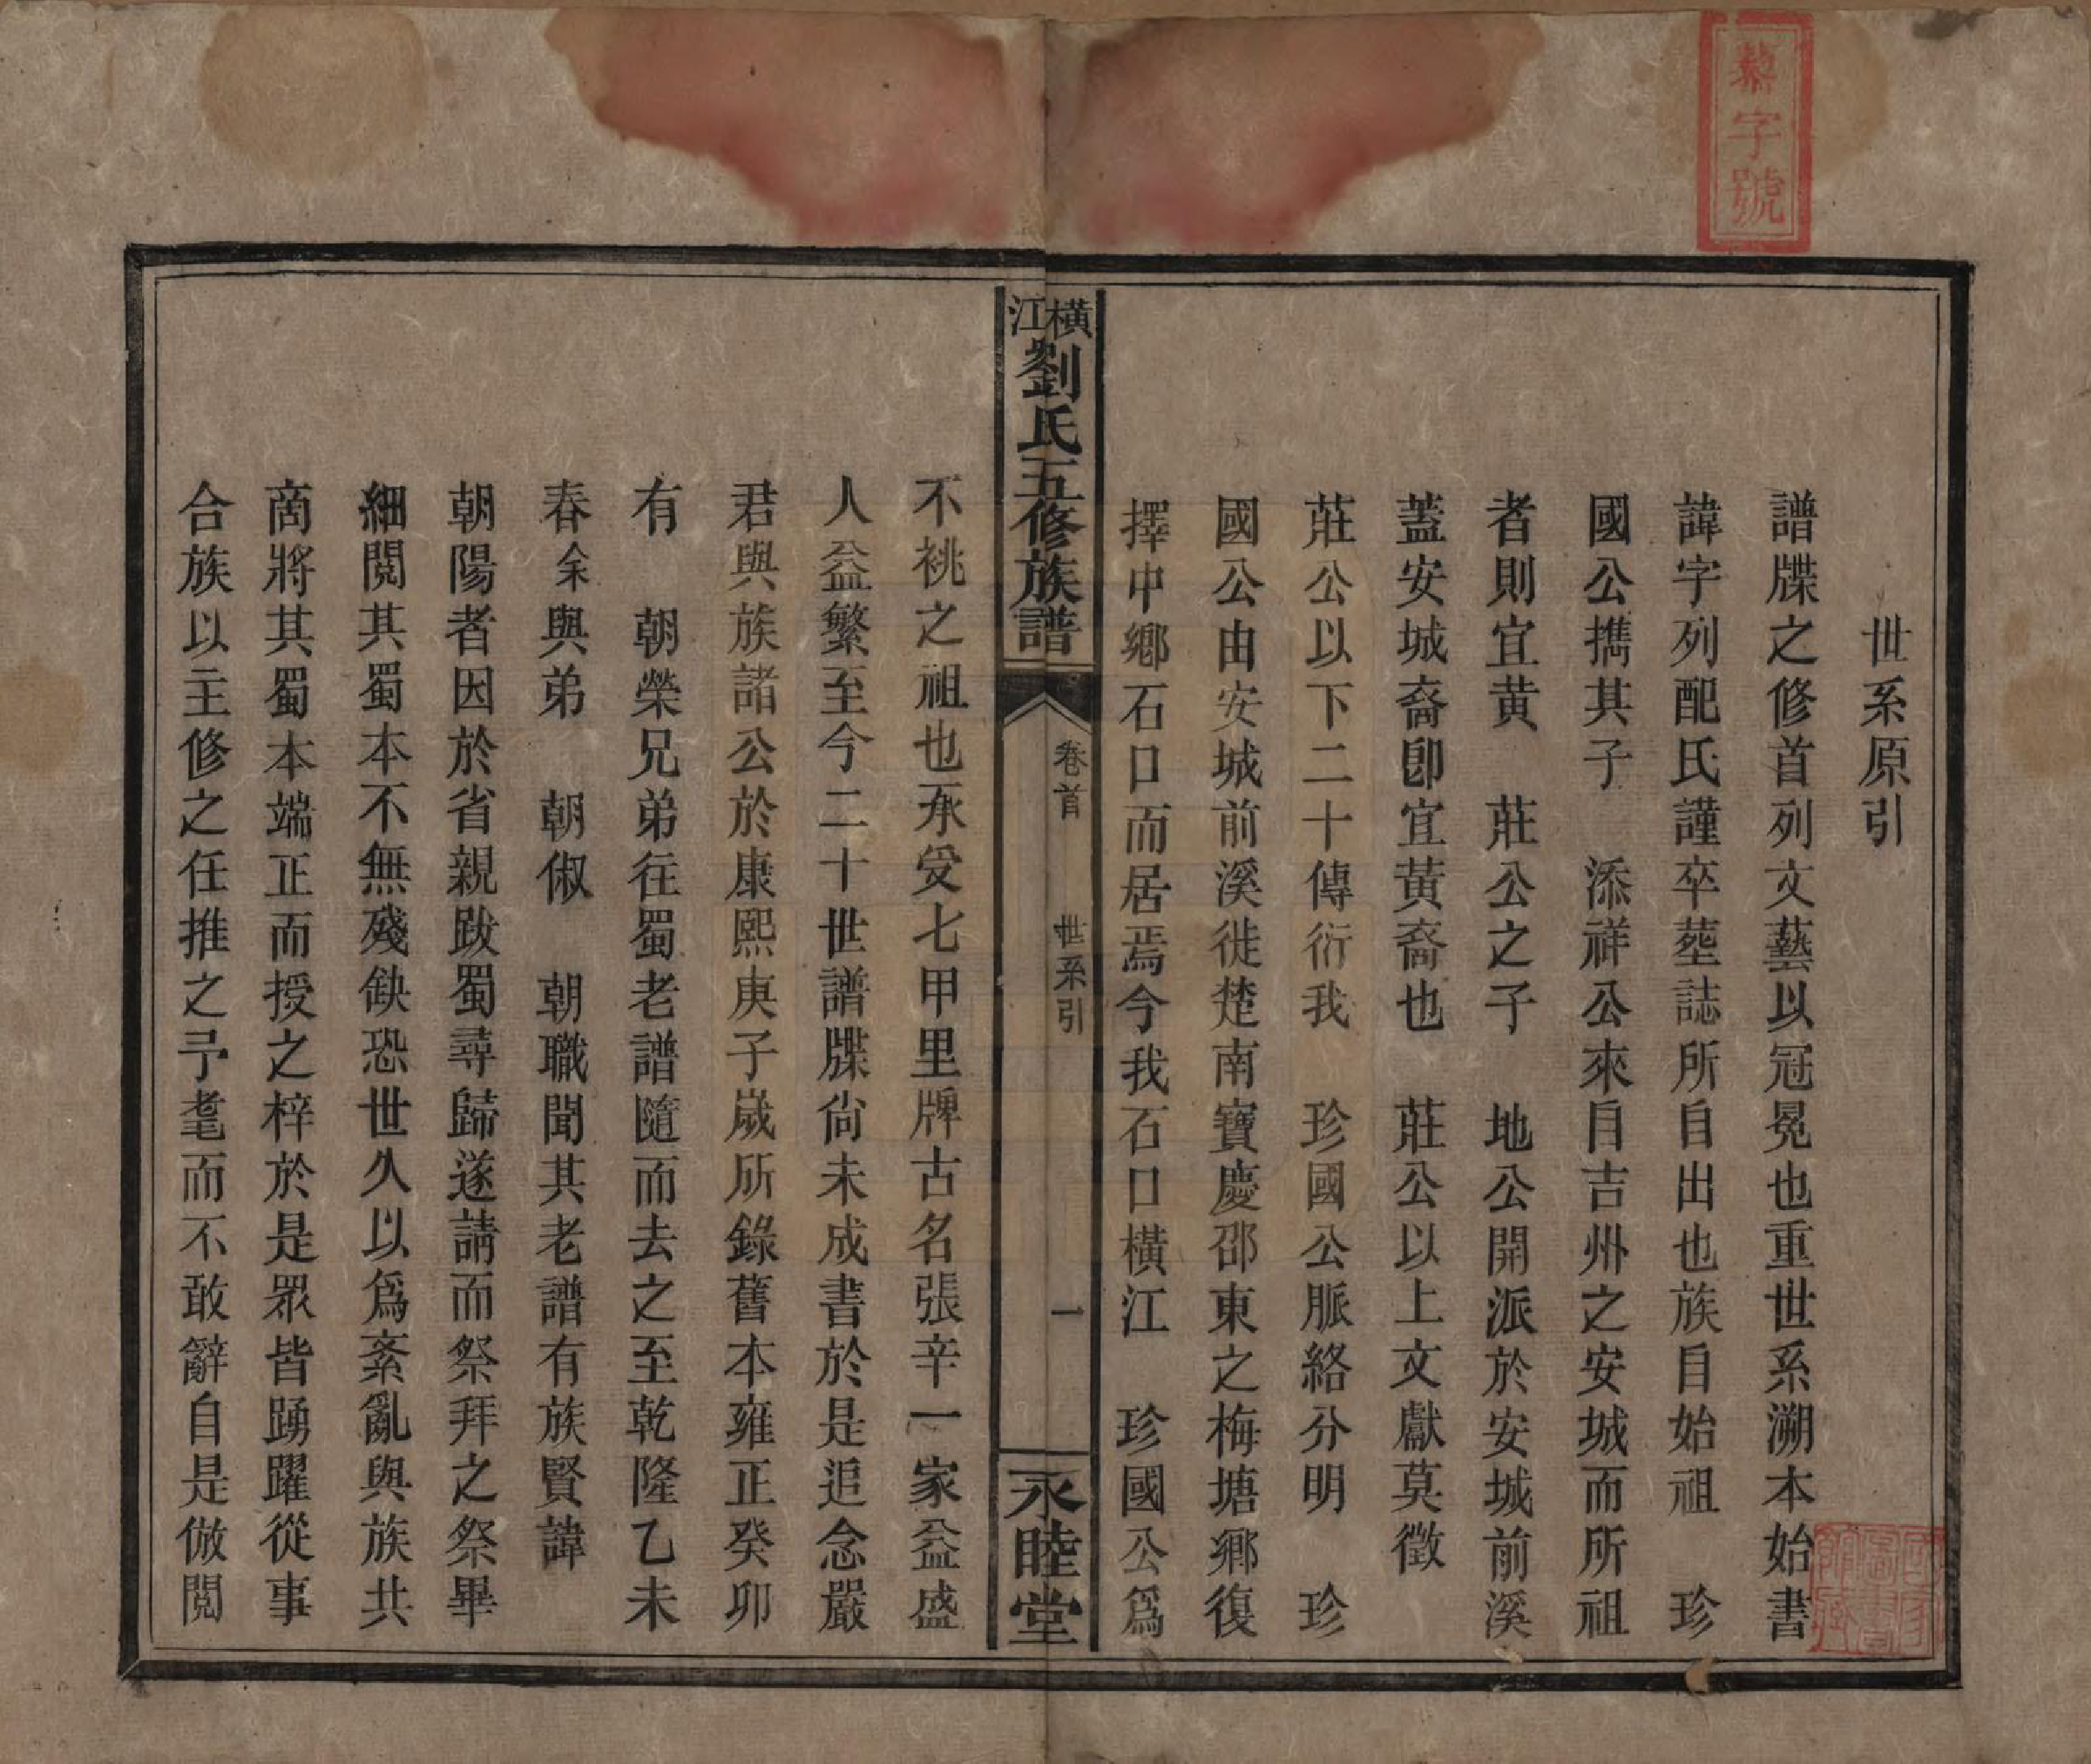 藜字號
世系原引
譜牒之修首列文藝以冠冕也重世系溯本始書
諱字列配氏謹卒塟誌所自出也族自始祖　珍
國公攜其子　添祥公來自吉州之安城而所祖
者則宜黄　莊公之子　地公開派於安城前溪
蓋安城裔卽宜黃裔也　莊公以上文獻莫徵
莊公以下二十傳衍我　珍國公脈絡分明　珍
國公由安城前溪徙楚南寶慶邵東之梅塘鄉復
擇中鄉石口而居焉今我石口橫江　珍國公爲
橫江劉氏五修族譜
卷首　世系引　一
永睦堂
不祧之祖也承受七甲里牌古名張辛一家益盛
人益繁至今二十世譜牒尙未成書於是追念嚴
君與族諸公於康熙庚子歲所錄舊本雍正癸卯
有　朝榮兄弟往蜀老譜隨而去之至乾隆乙未
春余與弟　朝俶　朝職聞其老譜有族賢諱
朝陽者因於省親跋蜀尋歸遂請而祭拜之祭畢
細閱其蜀本不無殘缺恐世久以爲紊亂與族共
商將其蜀本端正而授之梓於是眾皆踴躍從事
合族以主修之任推之予耄而不敢辭自是倣閱